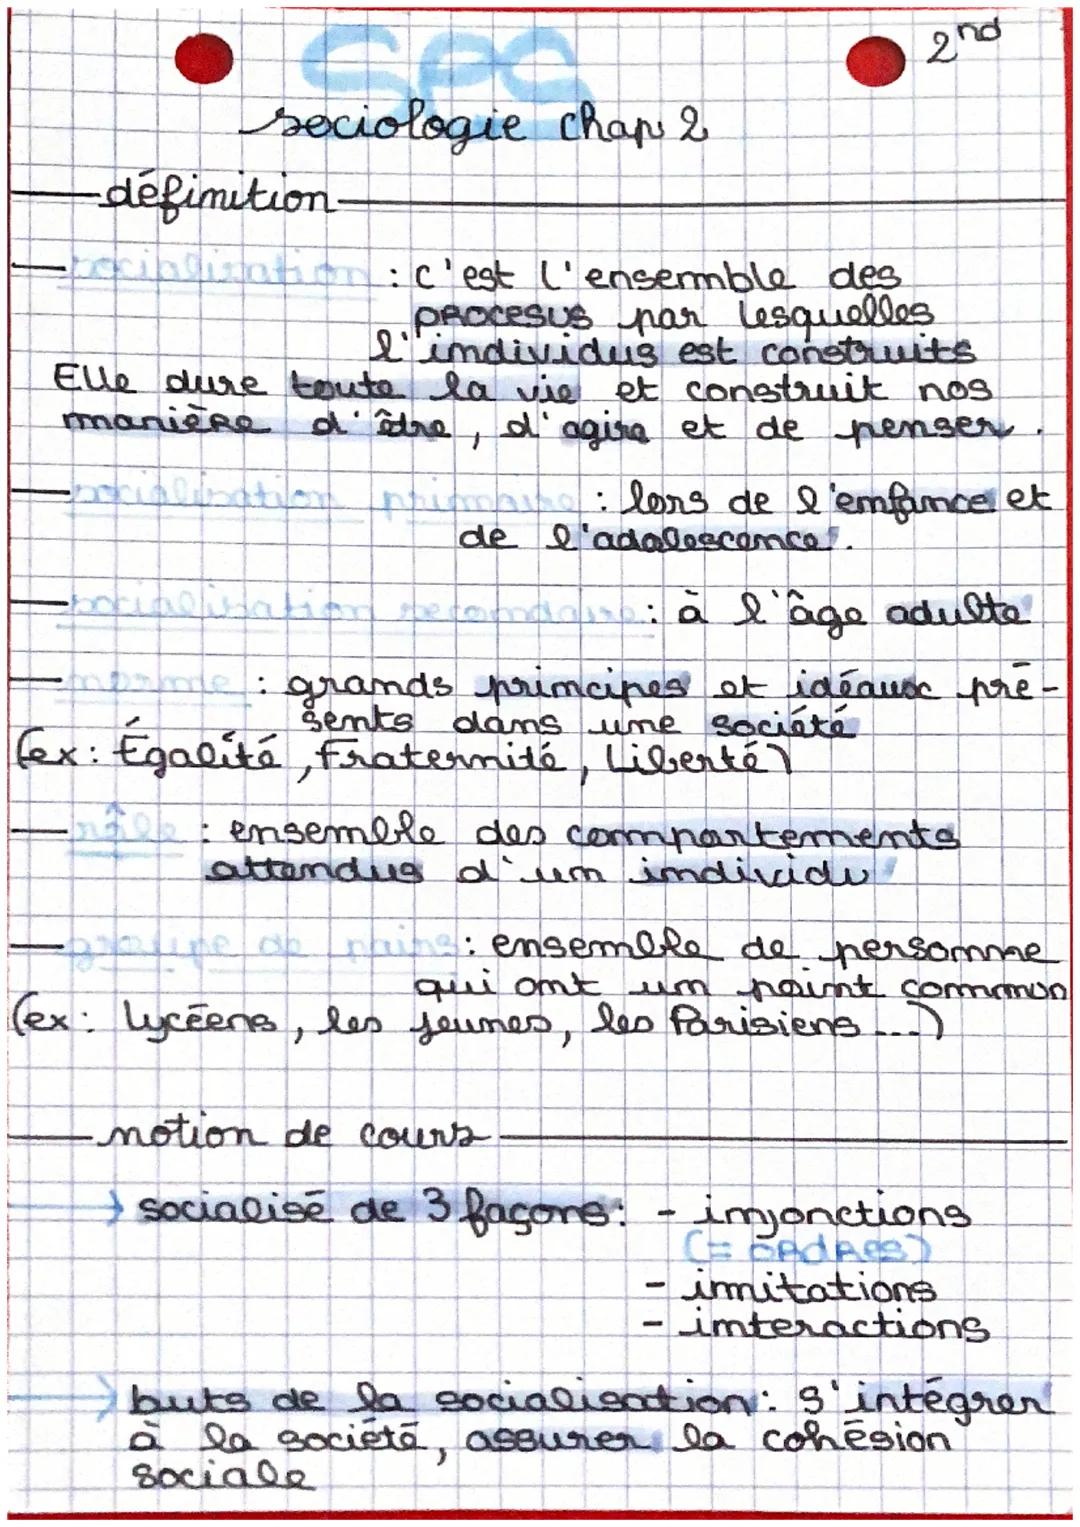 SES
2nd
sociologie chap 2
définition
socialisation : c'est l'ensemble des
procesus par lesquelles
l'individus est construits
Elle dure toute la vie et construit nos
manière d'être, d'agire et de penser.
socialisation primaire : lors de l'enfance et
de l'adolescence.
socialisation secondaire : à l'âge adulte
norme : grands principes et idéaux pré-
sents dans une société
(ex: Égalité, Fraternité, Liberté)
rôle : ensemble des comportements
attendus d'un individu
groupe de pairs : ensemble de personne
qui ont un point commun
(ex: lycéens, les jeunes, les Parisiens ...)
notion de cours
→ socialisé de 3 façons: - injonctions
(= ordres)
- imitations
- interactions
→ buts de la socialisation: s'intégrer
à la société, assurer la cohésion
sociale